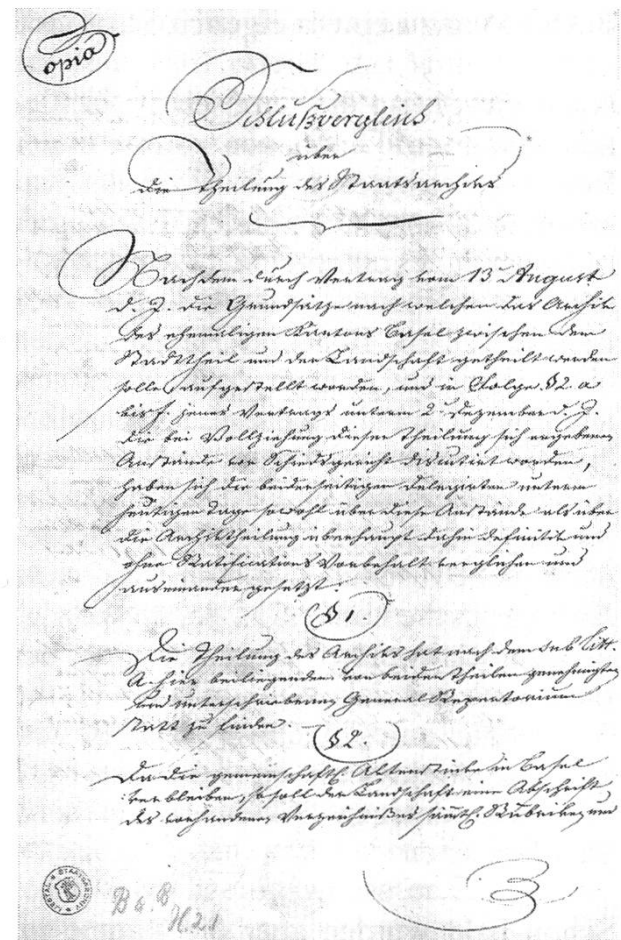 Copia
Schlußvergleich
über
die Theilung des Staatsarchives
Nachdem durch Vertrag vom 13. August
d. J. die Grundsätze nach welchen das Archiv
des ehemaligen Kantons Basel zwischen dem
Stadttheil und der Landschaft getheilt werden
solle, aufgestellt worden, und in Folge § 2. a
bis f. jenes Vertrags unterm 2. Dezember d. J.
die bei Vollziehung dieser Theilung sich ergebenen
Anstände vor Schiedsgericht diskutirt worden,
haben sich die beiderseitigen Delegirten unterm
heutigen Tage sowohl über diese Anstände als über
die Archivtheilung überhaupt dahin definitiv und
ohne Ratifications Vorbehalt verglichen und
auseinander gesetzt:
§ 1.
Die Theilung des Archivs hat nach dem sub Litt.
A. hier beiliegenden von beiden Theilen genehmigten
und unterschriebenen General Repertorium
statt zu finden.
§ 2.
Da die gemeinschaftl. Aktenstücke in Basel
verbleiben, so soll der Landschaft eine Abschrift
des vorhandenen Verzeichnißes sämtl. Rubriken, und
STAATSARCHIV
B a. B
H. 21